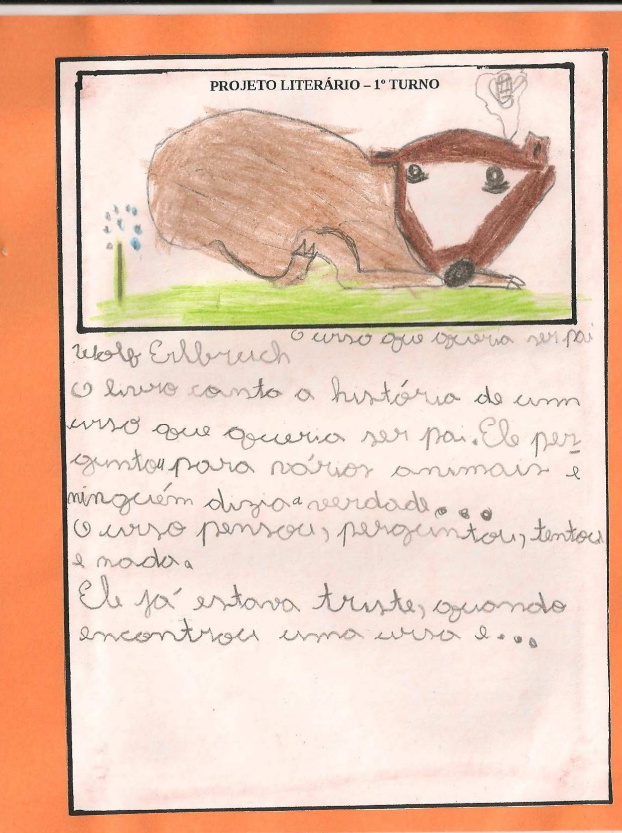 PROJETO LITERÁRIO – 1º TURNO
O urso que queria ser pai
Wolf Erlbruch
O livro conta a história de um
urso que queria ser pai. Ele per-
guntou para vários animais e
ninguém dizia a verdade...
O urso pensou, perguntou, tentou
e nada.
Ele já estava triste, quando
encontrou uma ursa e...